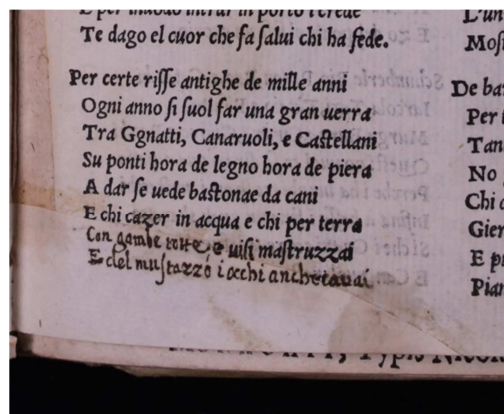 E per
in porto i crede
Te dago el cuor che fa salui chi ha fede.
Per certe risse antighe de mille anni
Ogni anno si suol far una gran uerra
Tra Ggnatti, Canaruoli, e Castellani
Su ponti hora de legno hora de piera
A dar se uede bastonae da cani
E chi cazer in acqua e chi per terra
Con gambe rotte, e uisi mastruzzai
E del mustazzo i occhi anche cauai
L'un
Mos
De bas
Per i
Tan
No
Chi
Gier
E pi
Pian
Typis Nicol